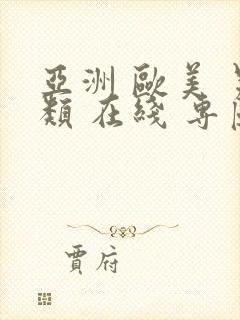 亞洲 歐美
類 在綫 專
賈府